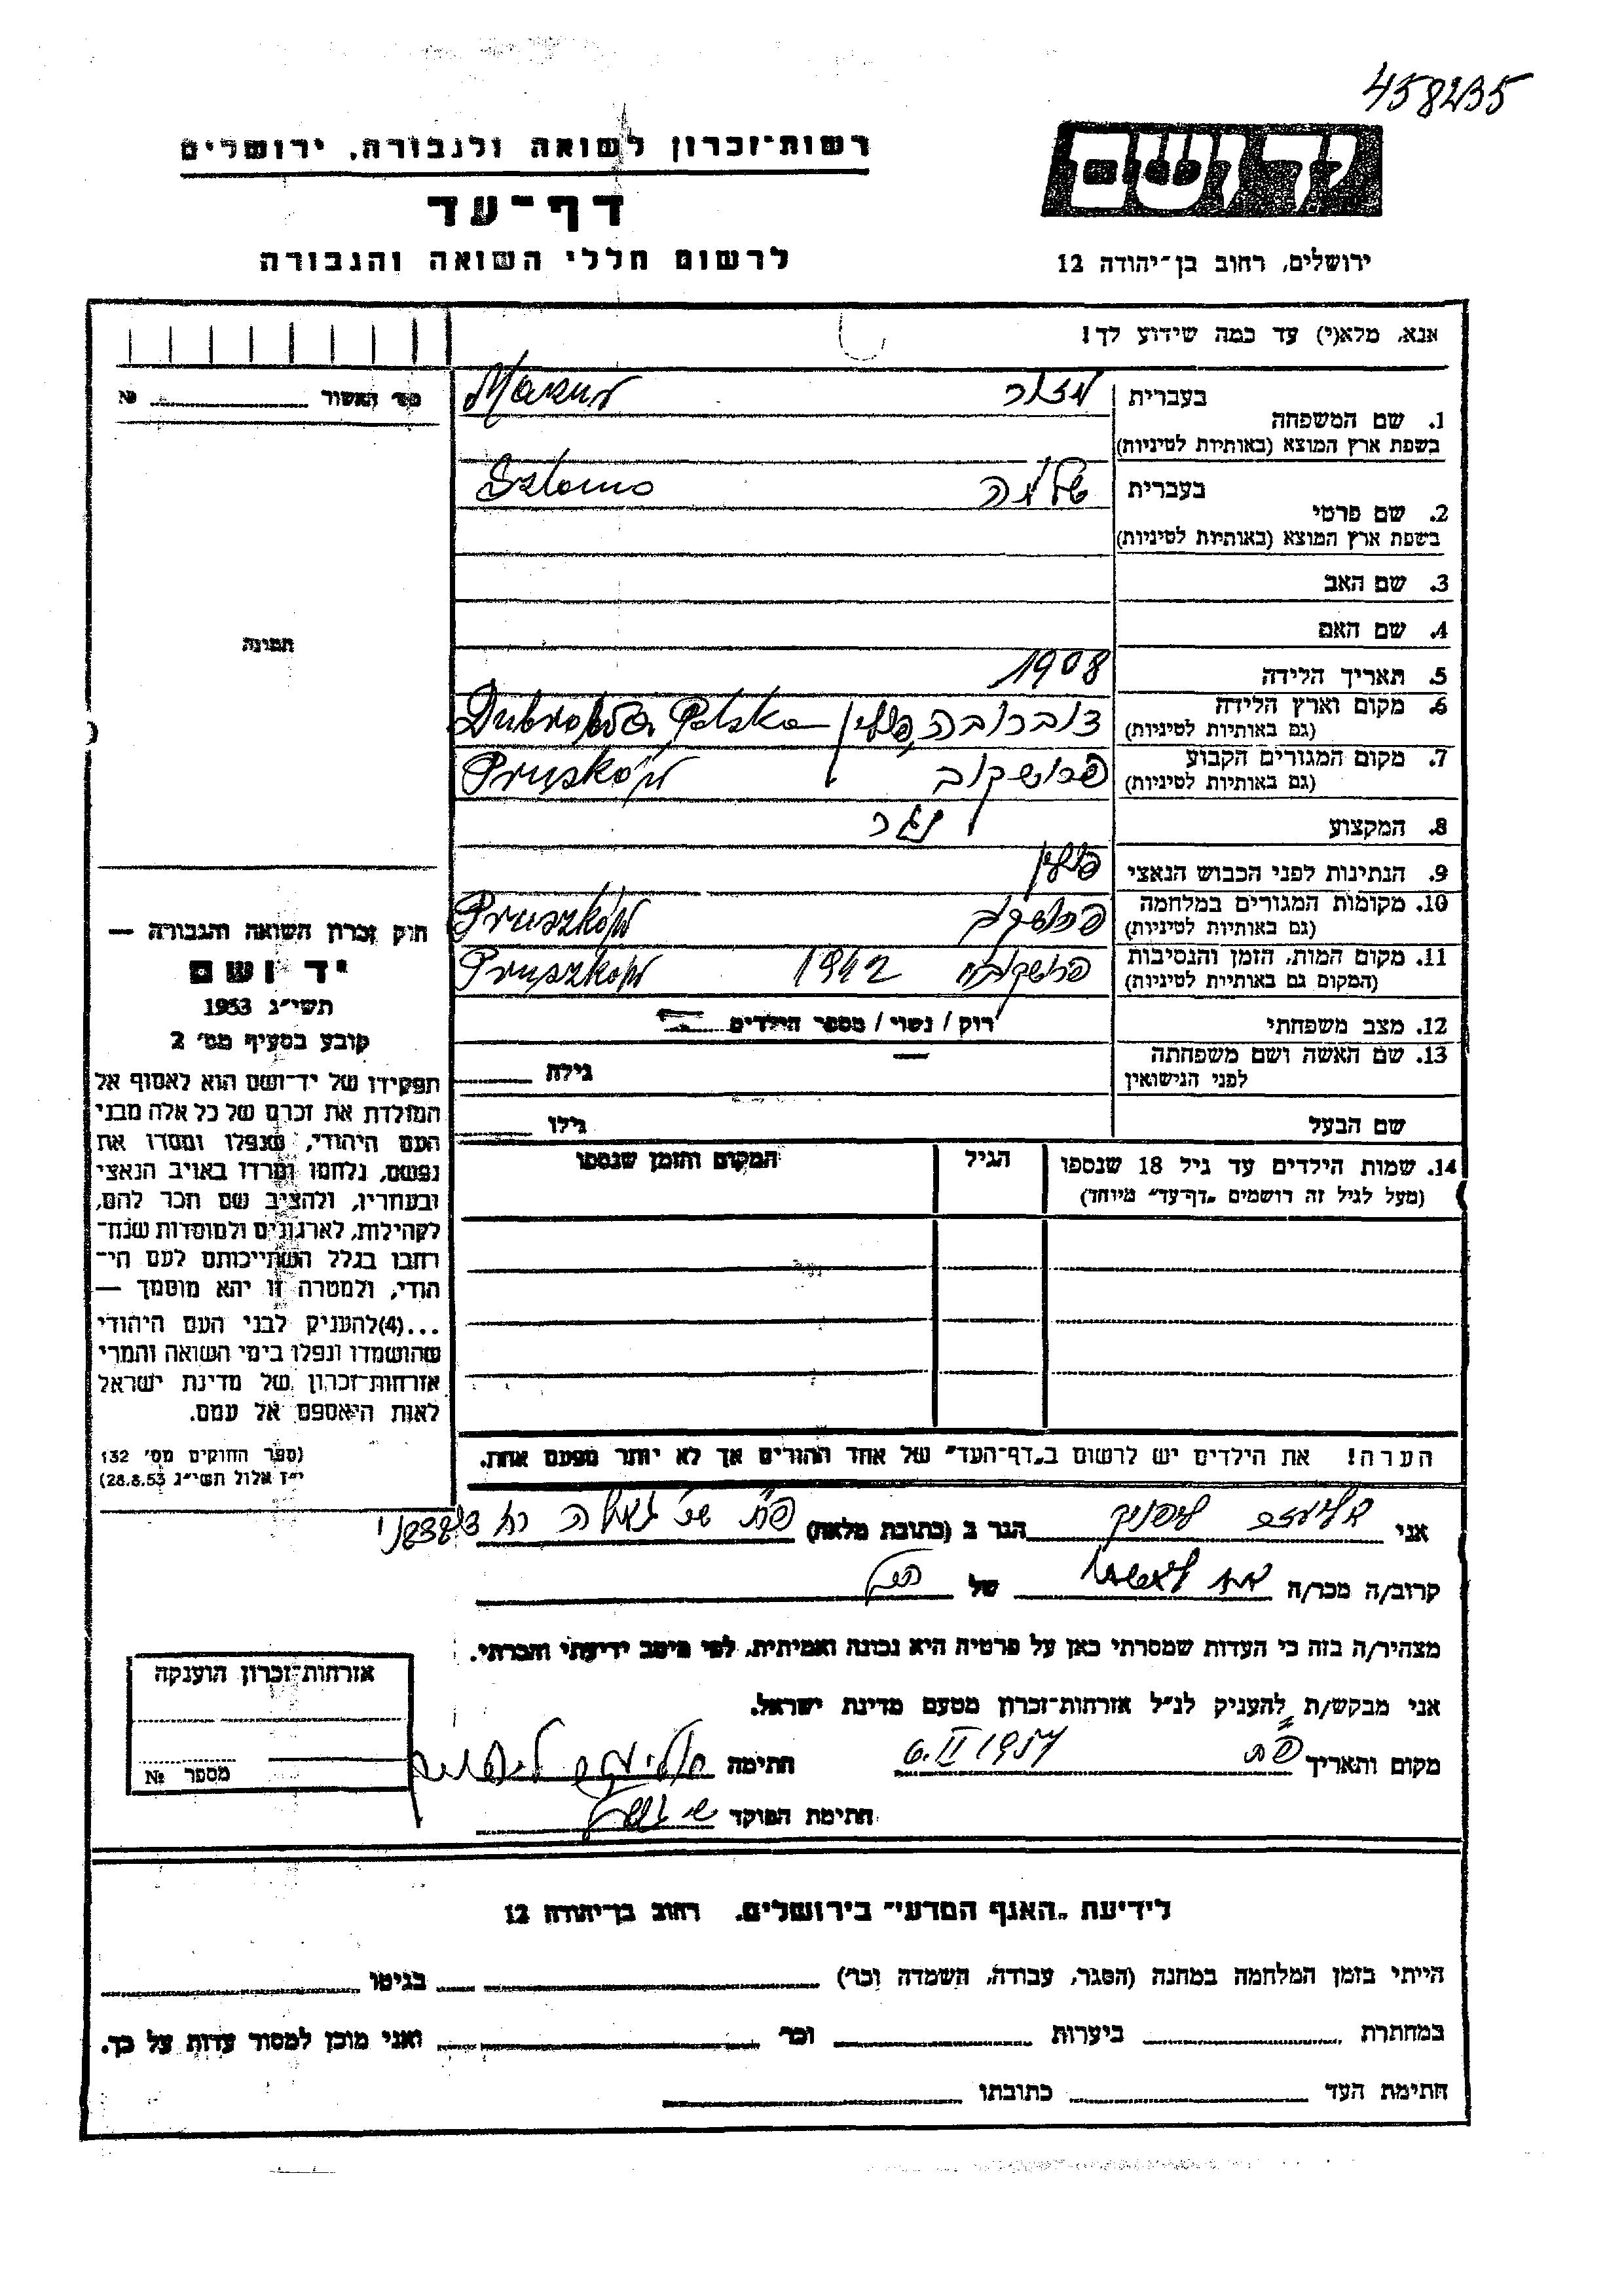 458235
רשות־זכרון לשואה ולגבורה, ירושלים
דף־עד
לרשום חללי השואה והגבורה
ידושם
ירושלים, רחוב בן־יהודה 12
אנא, מלא(י) עד כמה שידוע לך!
מס׳ האשור № 
1. שם המשפחה
בעברית מזור
בשפת ארץ המוצא (באותיות לטיניות) Mazur
2. שם פרטי
בעברית שלמה
בשפת ארץ המוצא (באותיות לטיניות) Szlomo
3. שם האב
4. שם האם
5. תאריך הלידה 1908
6. מקום וארץ הלידה דוברובה, פולין Polska
(גם באותיות לטיניות)
7. מקום המגורים הקבוע פרושקוב Pruszków
(גם באותיות לטיניות)
8. המקצוע נגר
9. הנתינות לפני הכבוש הנאצי פולין
10. מקומות המגורים במלחמה פרושקוב Pruszków
(גם באותיות לטיניות)
11. מקום המות, הזמן והנסיבות פרושקוב 1942 Pruszków
(המקום גם באותיות לטיניות)
12. מצב משפחתי רוק / נשוי / מספר הילדים
13. שם האשה ושם משפחתה
לפני הנישואין
גילה
שם הבעל גילו
14. שמות הילדים עד גיל 18 שנספו
(מעל לגיל זה רושמים „דף־עד" מיוחד)
הגיל
המקום והזמן שנספו
הערה! את הילדים יש לרשום ב„דף־העד" של אחד ההורים אך לא יותר מפעם אחת.
תמונה
חוק זכרון השואה והגבורה —
יד ושם
תשי״ג 1953
קובע בסעיף מס׳ 2
תפקידו של יד־ושם הוא לאסוף אל
המולדת את זכרם של כל אלה מבני
העם היהודי, שנפלו ומסרו את
נפשם, נלחמו ומרדו באויב הנאצי
ובעוזריו, ולהציב שם וזכר להם,
לקהילות, לארגונים ולמוסדות שנח־
רחבו בגלל השתייכותם לעם הי־
הודי, ולמטרה זו יהא מוסמך —
...(4)להעניק לבני העם היהודי
שהושמדו ונפלו בימי השואה והמרי
אזרחות־זכרון של מדינת ישראל
לאות היאספם אל עמם.
(ספר החוקים מס׳ 132
י״ז אלול תשי״ג 28.8.53)
אני הגר ב (כתובת מלאה) פ״ת
קרוב/ה מכר/ה של
מצהיר/ה בזה כי העדות שמסרתי כאן על פרטיה היא נכונה ואמיתית, לפי מיטב ידיעתי והכרתי.
אני מבקש/ת להעניק לנ״ל אזרחות־זכרון מטעם מדינת ישראל.
מקום ותאריך פ״ת 6.II 1957 חתימה
חתימת הפוקד
אזרחות־זכרון הוענקה
מספר №
לידיעת „האגף המדעי" בירושלים. רחוב בן־יהודה 12
הייתי בזמן המלחמה במחנה (הסגר, עבודה, השמדה וכו׳) בגיטו
במחתרת ביערות וכו׳ ואני מוכן למסור עדות על כך.
חתימת העד כתובתו